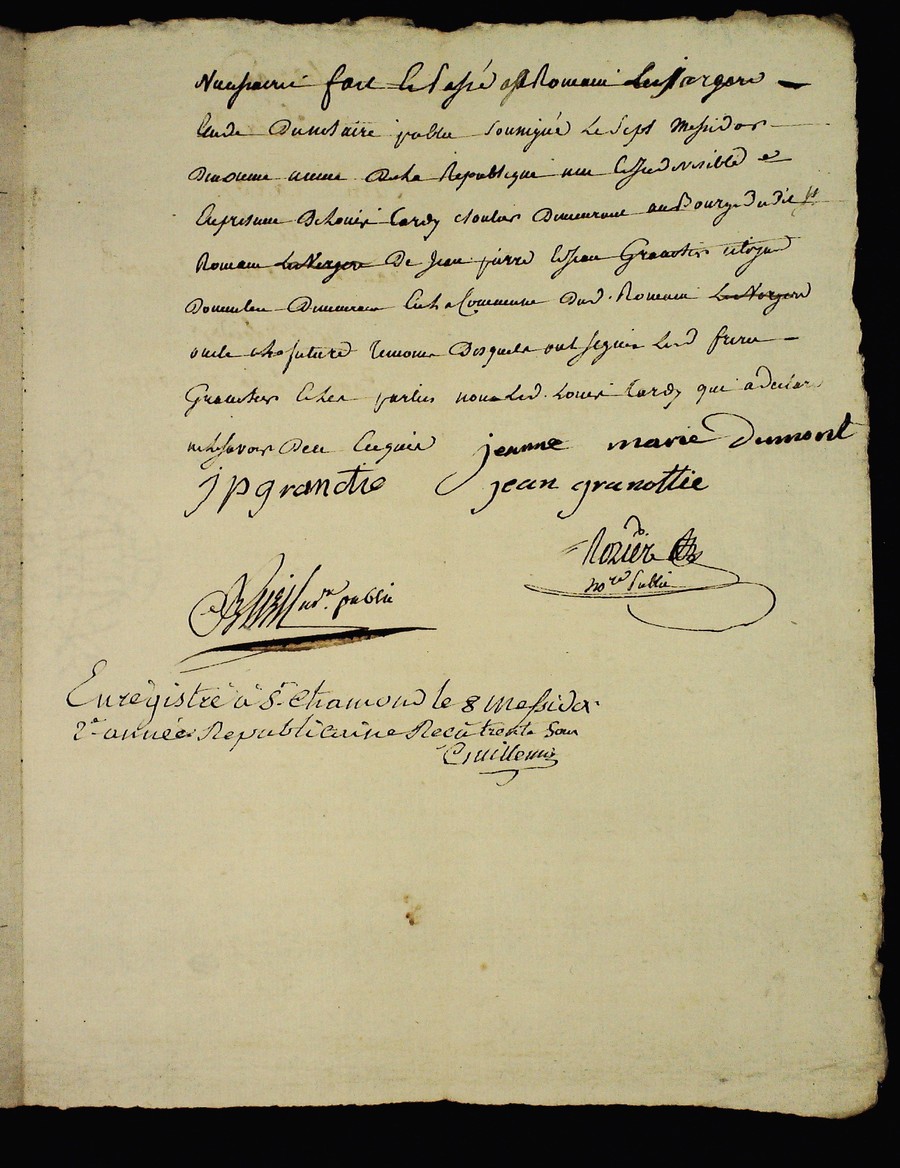 fait et Passé a St Romain Les Vergers
Etude Du notaire public soussigné Le Sept Messidor
Deuxieme année De La Republique une et indivisible
En presence De Louis Tardy cloutier Demeurant au Bourg dudit St
Romain Les Vergers De Jean pierre et Jean Granotier citoyens
Demeurant En La Commune Dud. Romain Les Vergers
temoins Desquels ont signé Les d. freres
Granotier et Les parties non Led. Louis Tardy qui a declaré
ne Savoir De ce Enquis
jeanne marie Dumont
j p granotie
jean granottie
Rozier
nore Public
nore public
Enregistré a St Chamond le 8 Messidor
2e année Republicaine Recu trente Sous
Guillemin